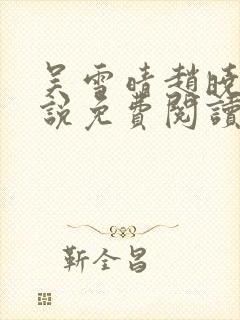 吴雪晴趙曉
說免費閱讀
靳全昌